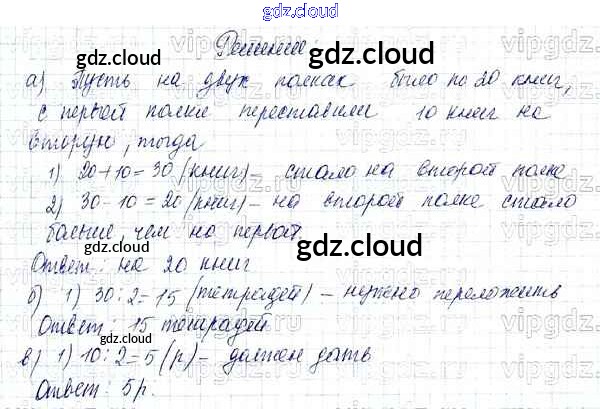 gdz.cloud
Решение:
gdz.cloud
gdz.cloud
а) Пусть на двух полках было по 20 книг,
с первой полки переставили 10 книг на
вторую, тогда
gdz.cloud
1) 20+10=30 (книг) - стало на второй полке
2) 30-10=20 (книг) - на второй полке стало
больше, чем на первой
gdz.cloud
gdz.cloud
Ответ: на 20 книг
б) 1) 30:2=15 (тетрадей) - нужно переложить
Ответ: 15 тетрадей
gdz.cloud
gdz.cloud
в) 1) 10:2=5 (р) - должен дать
Ответ: 5р.